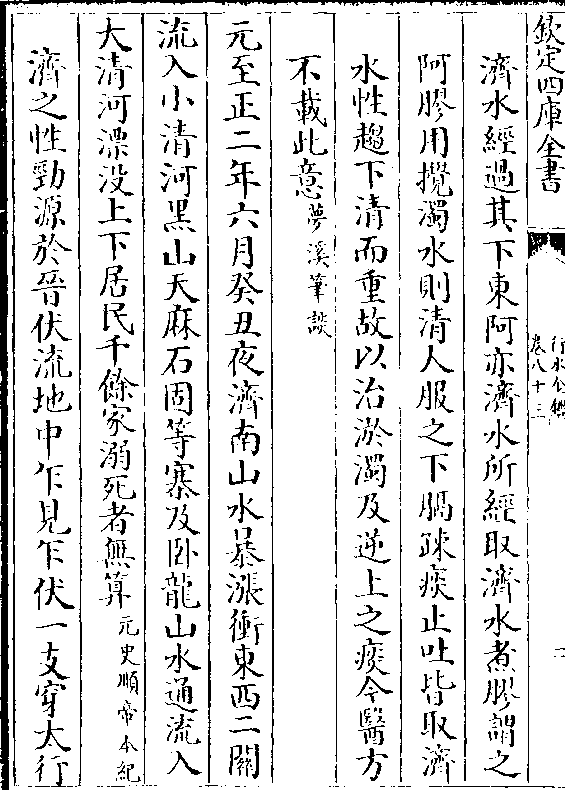 欽定四庫全書
行水金鑑
卷八十三
濟水經過其下東阿亦濟水所經取濟水煮膠謂之
阿膠用攪濁水則清人服之下膈疎痰止吐皆取濟
水性趨下清而重故以治淤濁及逆上之痰今醫方
不載此意夢溪筆談
元至正二年六月癸丑夜濟南山水暴漲衝東西二關
流入小清河黑山天麻石固等寨及卧龍山水通流入
大清河漂没上下居民千餘家溺死者無算元史順帝本紀
濟之性勁源於晉伏流地中乍見乍伏一支穿太行